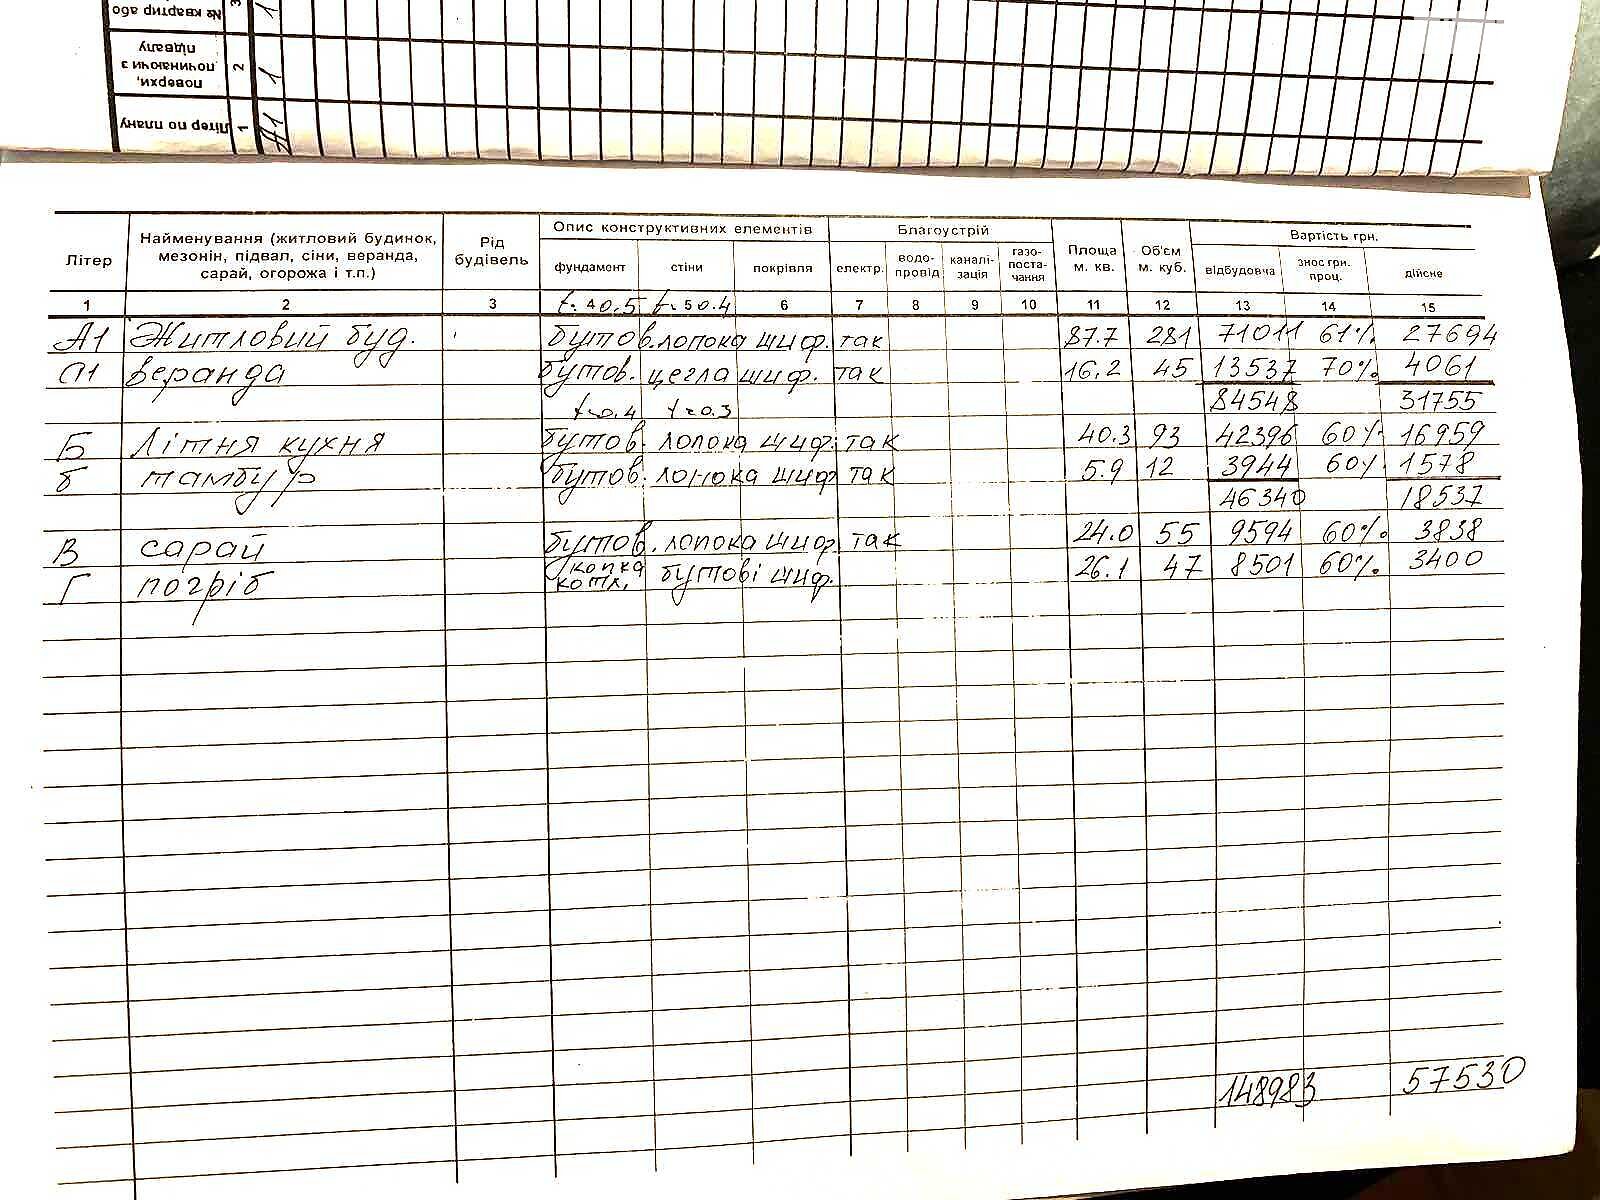 № квартир або 3 1
поверхи, починаючи з підвалу 2 1
Літер по плану 1 А1
Літер Найменування (житловий будинок, мезонін, підвал, сіни, веранда, сарай, огорожа і т.п.) Рід будівель Опис конструктивних елементів Благоустрій Площа м. кв. Об'єм м. куб. Вартість грн.
фундамент стіни покрівля електр. водо-провід каналі-зація газо-поста-чання відбудовча знос грн. проц. дійсне
1 2 3 4 5 6 7 8 9 10 11 12 13 14 15
t=0.5 t=0.4
А1 Житловий буд. бутов. лопока шиф. так 87.7 281 71011 61% 27694
а1 веранда бутов. цегла шиф. так 16.2 45 13537 70% 4061
t=0.4 t=0.3 84548 31755
Б Літня кухня бутов. лопока шиф. так 40.3 93 42396 60% 16959
б тамбур бутов. лопока шиф так 5.9 12 3944 60% 1578
46340 18537
В сарай бутов. лопока шиф. так 24.0 55 9594 60% 3838
Г погріб копка котл. бутові шиф. 26.1 47 8501 60% 3400
148983 57530